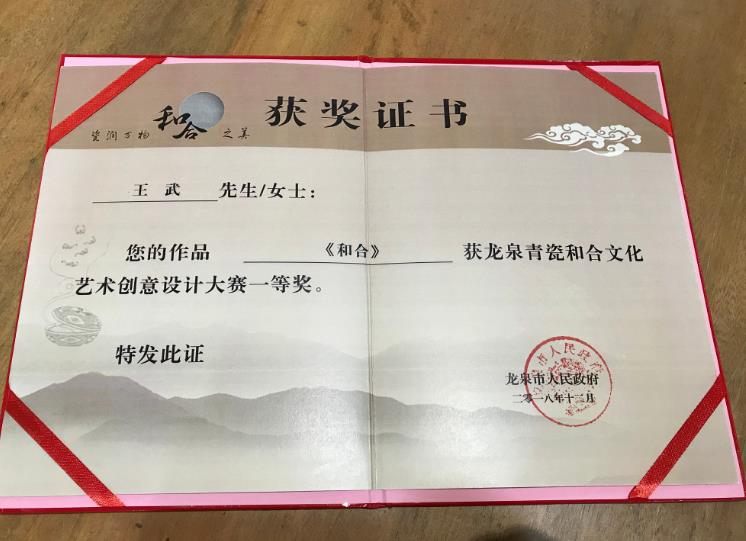 瓷润万物 和合 之美 获奖证书
王 武 先生/女士：
您的作品 《和合》 获龙泉青瓷和合文化
艺术创意设计大赛一等奖。
特发此证
龙泉市人民政府
二零一八年十二月